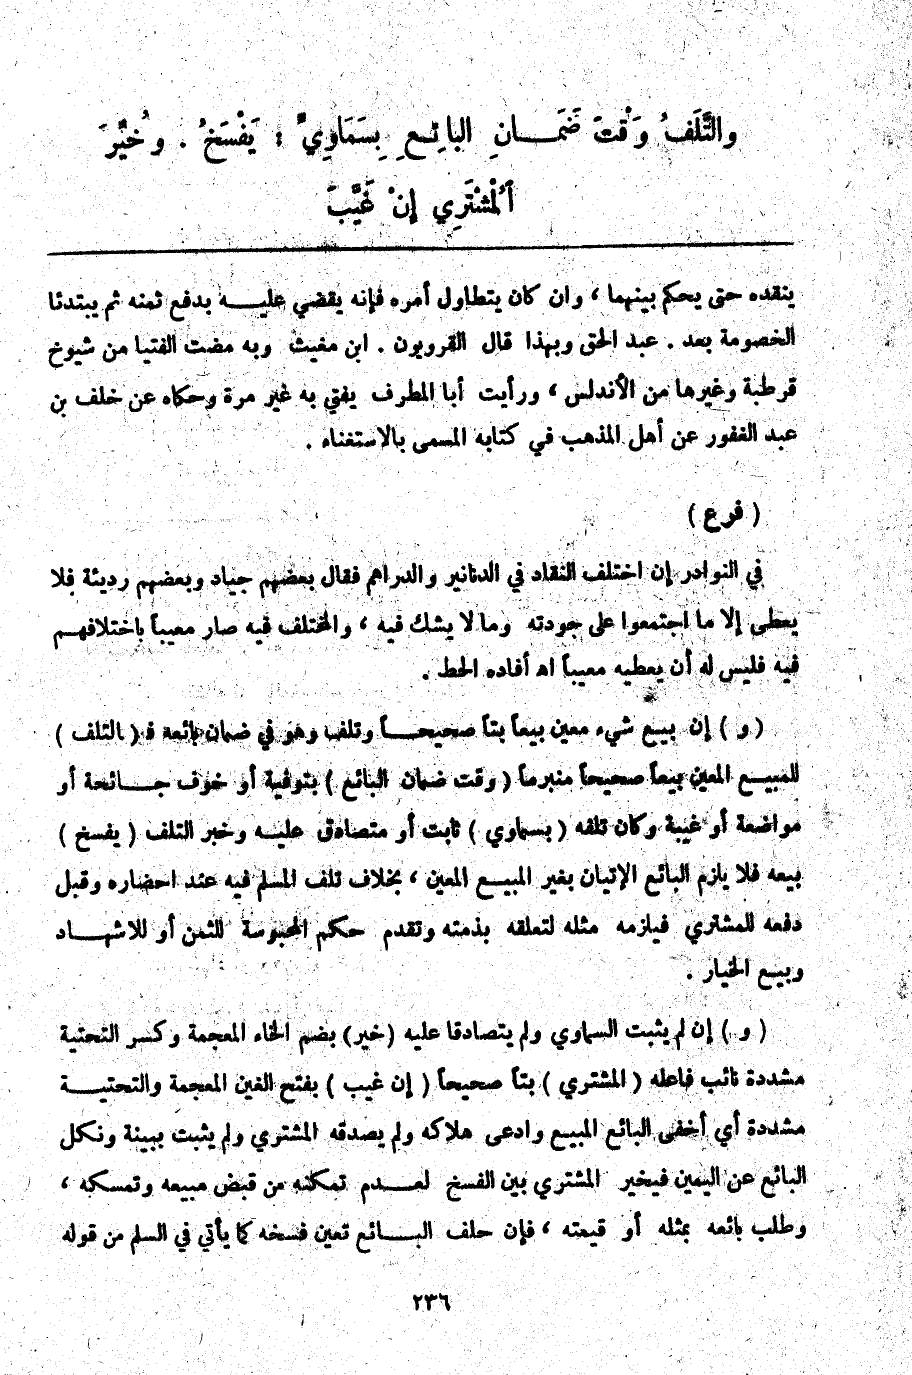 والتَّلَفُ وَقْتَ ضَمَانِ البائِعِ بِسَمَاوِيٍّ : يَفْسَخُ . وخُيِّرَ
ٱلْمُشْتَرِي إنْ غَيَّبَ
ينقده حتى يحكم بينهما ، وان كان يتطاول أمره فإنه يقضي عليه بدفع ثمنه ثم يبتدئا
الخصومة بعد . عبد الحق وبهذا قال القرويون . ابن مغيث وبه مضت الفتيا من شيوخ
قرطبة وغيرها من الأندلس ، ورأيت أبا المطرف يفتي به غير مرة وحكاه عن خلف بن
عبد الغفور عن أهل المذهب في كتابه المسمى بالاستغناء .
( فرع )
في النوادر إن اختلف النقاد في الدنانير والدراهم فقال بعضهم جياد وبعضهم رديئة فلا
يعطى إلا ما اجتمعوا على جودته وما لا يشك فيه ، والمختلف فيه صار معيباً باختلافهم
فيه فليس له أن يعطيه معيباً اه أفاده الحط .
( و ) إن بيع شيء معين بيعاً بتاً صحيحاً وتلف وهو في ضمان بائعة فـ ( التلف )
للمبيع المعين بيعاً صحيحاً منبرماً ( وقت ضمان البائع ) بتوفية أو خوف جائحة أو
مواضعة أو غيبة وكان تلفه ( بسماوي ) ثابت أو متصادق عليه وخبر التلف ( يفسخ )
بيعه فلا يلزم البائع الإتيان بغير المبيع المعين ، بخلاف تلف المسلم فيه عند احضاره وقبل
دفعه للمشتري فيلزمه مثله لتعلقه بذمته وتقدم حكم المحبوسة للثمن أو للاشهاد
وبيع الخيار .
( و ) إن لم يثبت السماوي ولم يتصادقا عليه (خير) بضم الخاء المعجمة وكسر التحتية
مشددة نائب فاعله ( المشتري ) بتاً صحيحاً ( إن غيب ) بفتح الغين المعجمة والتحتية
مشددة أي أخفى البائع المبيع وادعى هلاكه ولم يصدقه المشتري ولم يثبت ببينة ونكل
البائع عن اليمين فيخير المشتري بين الفسخ لعدم تمكنه من قبض مبيعه وتمسكه ،
وطلب بائعه بمثله أو قيمته ، فإن حلف البائع تعين فسخه كما يأتي في السلم من قوله
٢٣٦